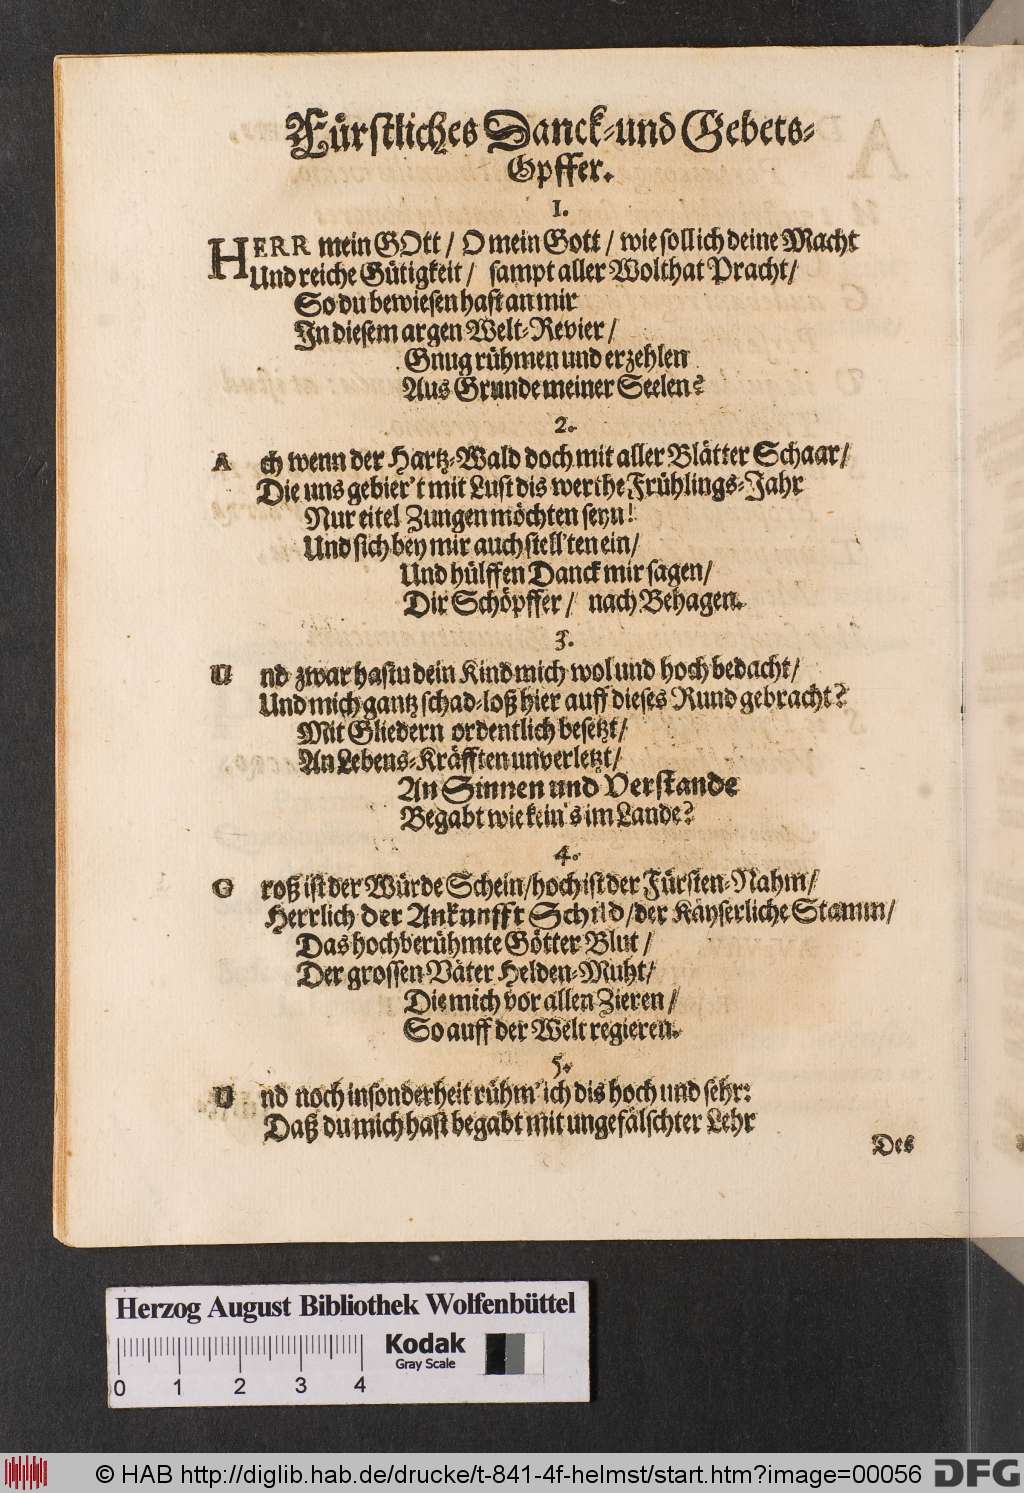 Fürstliches Danck-und Gebets-
Opffer.
1.
HERR mein GOtt / O mein Gott / wie soll ich deine Macht
Und reiche Gütigkeit / sampt aller Wolthat Pracht /
So du bewiesen hast an mir
In diesem argen Welt-Revier /
Gnug rühmen und erzehlen
Aus Grunde meiner Seelen?
2.
Ach wenn der Hartz-Wald doch mit aller Blätter Schaar /
Die uns gebier't mit Lust dis werthe Frühlings-Jahr
Nur eitel Zungen möchten seyn!
Und sich bey mir auch stell'ten ein /
Und hülffen Danck mir sagen /
Dir Schöpffer / nach Behagen.
3.
Und zwar hastu dein Kind mich wol und hoch bedacht /
Und mich gantz schad-loß hier auff dieses Rund gebracht?
Mit Gliedern ordentlich besetzt /
An Lebens-Kräfften unverletzt /
An Sinnen und Verstande
Begabt wie kein's im Lande?
4.
Groß ist der Würde Schein / hoch ist der Fürsten-Nahm /
Herrlich der Ankunfft Schild / der Käyserliche Stamm /
Das hochberühmte Götter Blut /
Der grossen Väter Helden-Muht /
Die mich vor allen Zieren /
So auff der Welt regieren.
5.
Und noch insonderheit rühm' ich dis hoch und sehr:
Daß du mich hast begabt mit ungefälschter Lehr
Des
Herzog August Bibliothek Wolfenbüttel
Kodak
Gray Scale
0 1 2 3 4
© HAB http://diglib.hab.de/drucke/t-841-4f-helmst/start.htm?image=00056
DFG